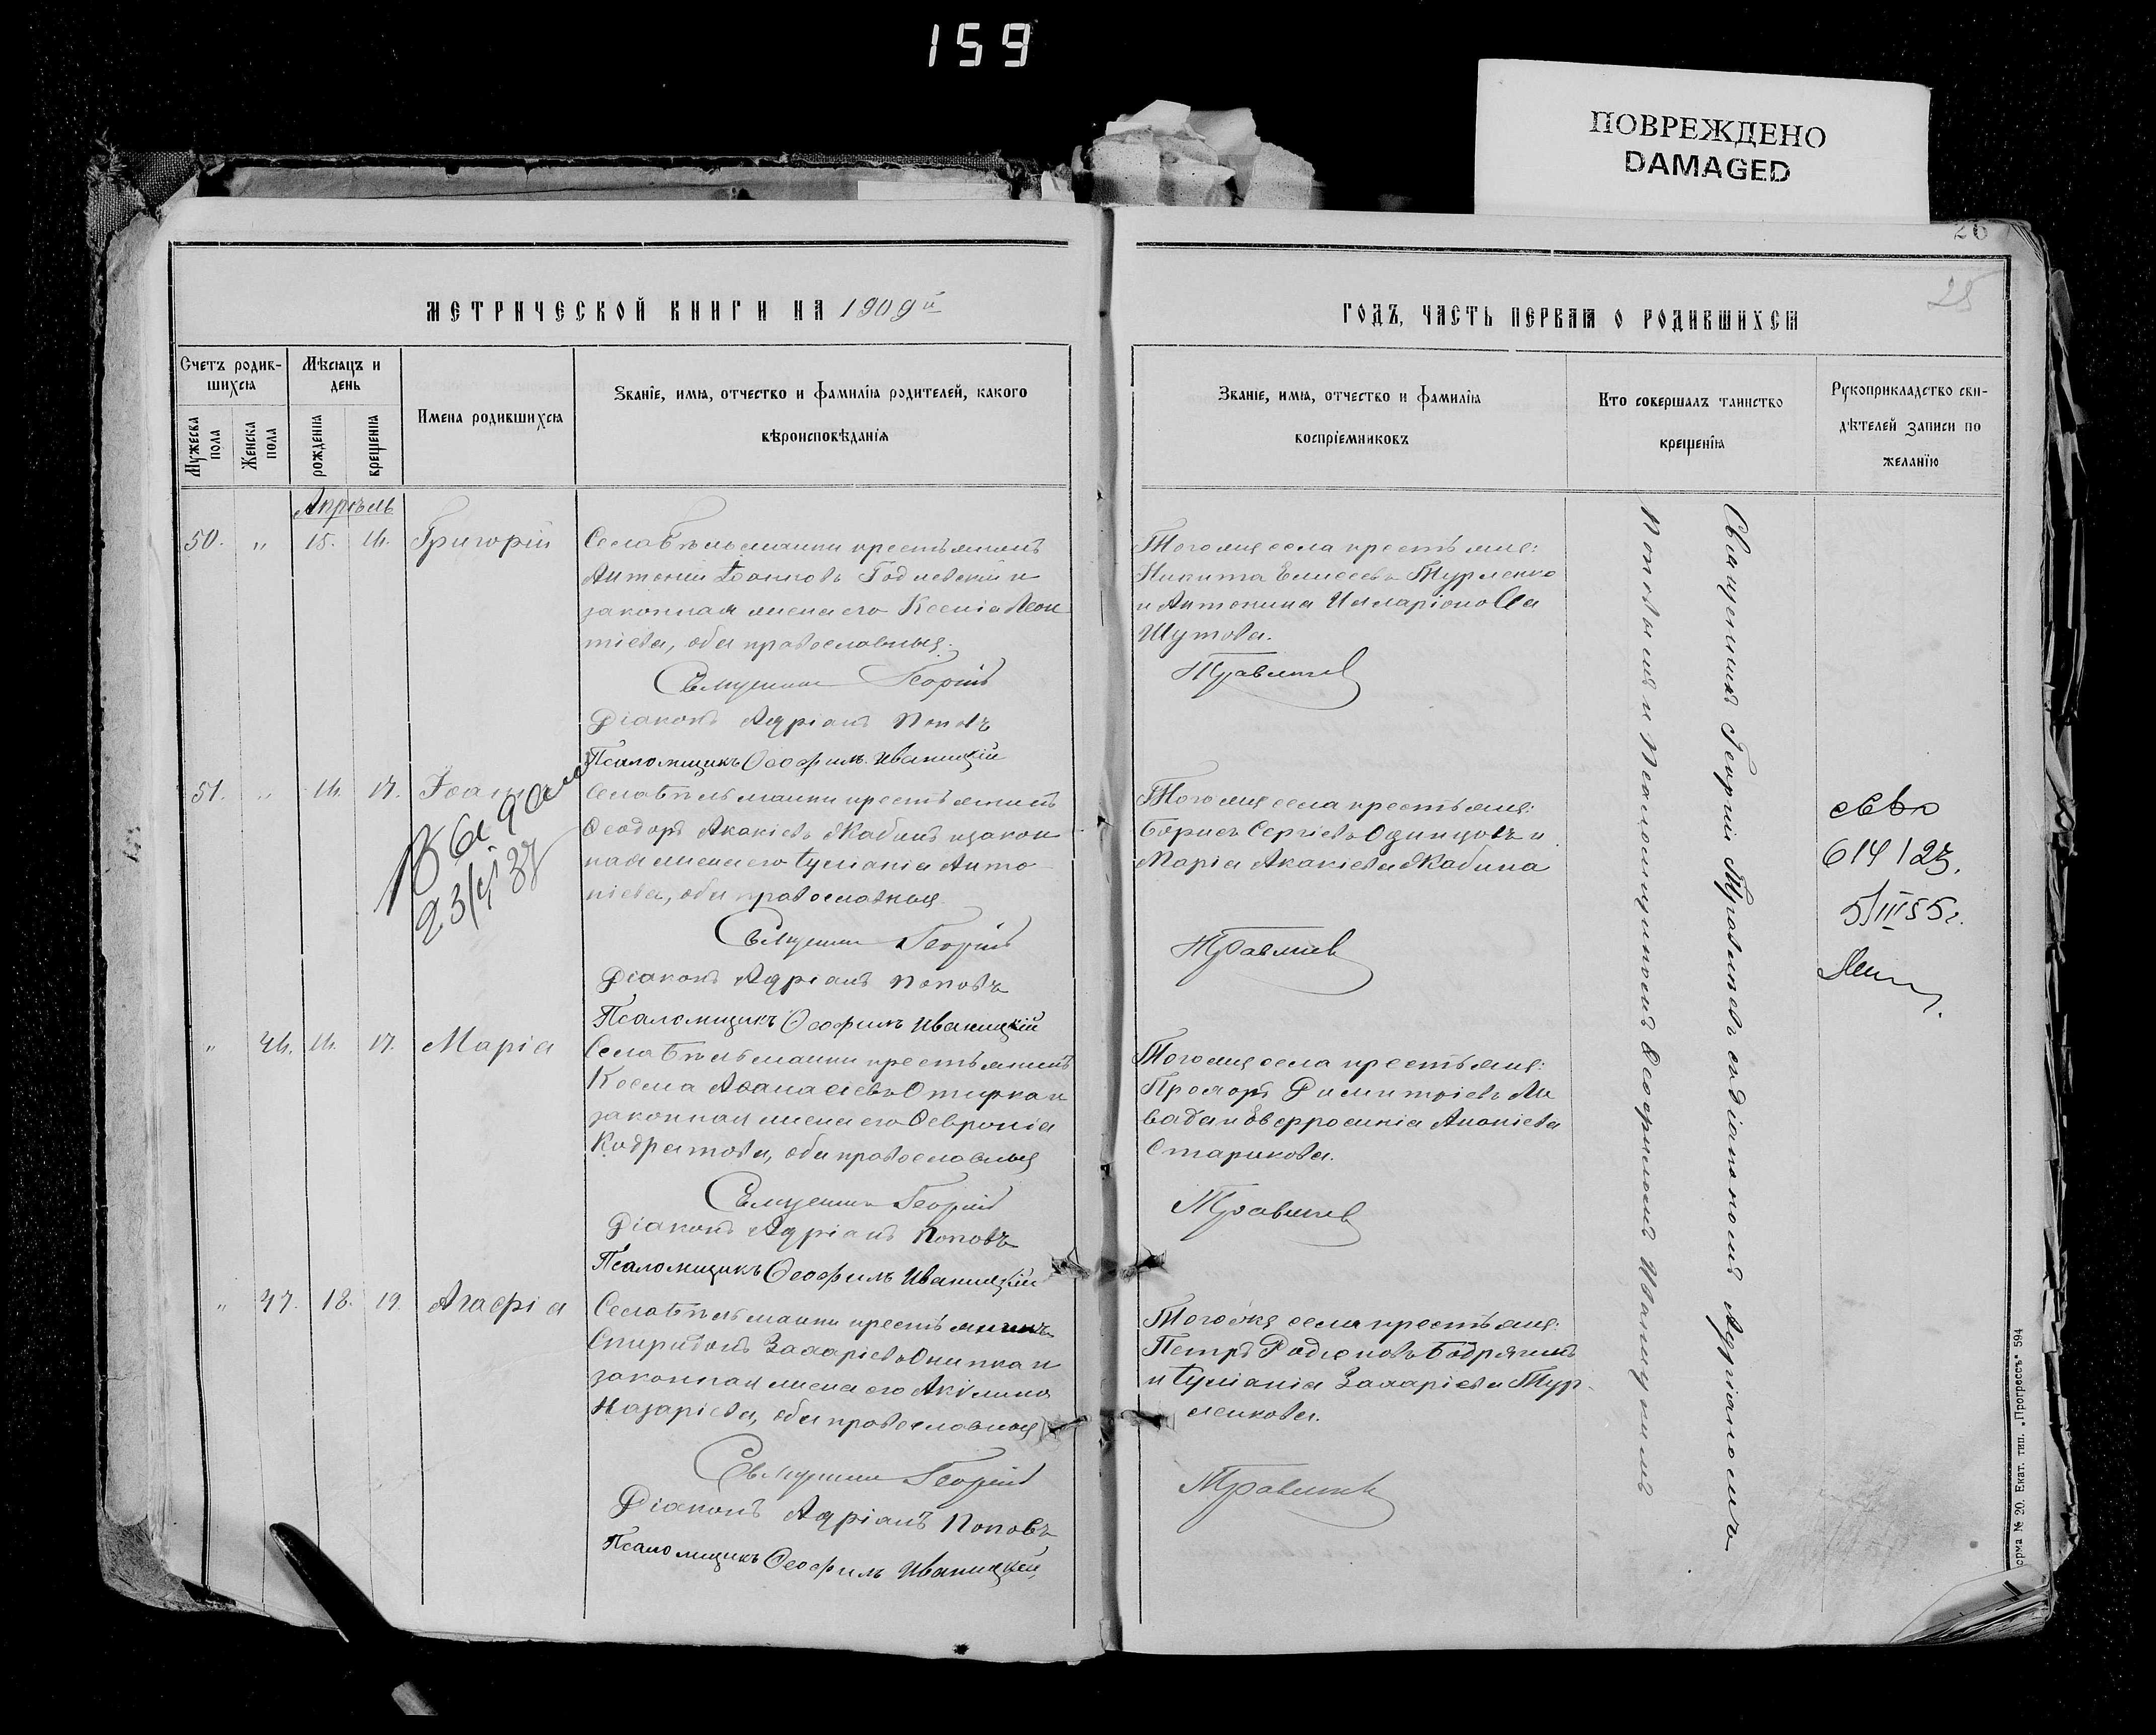 159
ПОВРЕЖДЕНО
DAMAGED
26
25
МЕТРИЧЕСКОЙ КНИГИ НА 1909й
ГОДЪ, ЧАСТЬ ПЕРВАЯ О РОДИВШИХСЯ
Счетъ родив-
шихся
Мужеска пола
Женска пола
Мѣсяцъ и
день
рожденія
крещенія
Имена родившихся
Званіе, имя, отчество и фамилія родителей, какого
вѣроисповѣданія
Званіе, имя, отчество и фамилія
воспріемниковъ
Кто совершалъ таинство
крещенія
Рукоприкладство сви-
дѣтелей записи по
желанію
Апрѣль
50. " 15. 16. Григорій
Села Бѣльманки крестьянинъ
Антоній Годлевскій и
законная жена его Ксенія Леон
тіева, оба православныя.
Священникъ Георгій
Діаконъ Адріанъ Поповъ
Псаломщикъ Ѳеофилъ Иваницкій
Того же села крестьяне:
Никита Елисеевъ Турленко
и Антонина Илларіонова
Шутова.
Травлевъ
51. " 16. 17. Іоаннъ
23/V 37
Села Бѣльманки крестьянинъ
Ѳеодоръ Акакіевъ Жабинъ и закон
ная жена его Іуліанія Анто
ніева, оба православныя
Священникъ Георгій
Діаконъ Адріанъ Поповъ
Псаломщикъ Ѳеофилъ Иваницкій
Того же села крестьяне:
Борисъ Сергіевъ Одинцовъ и
Марія Акакіева Жабина
614123,
5/III 55г.
" 46. 16. 17. Марія
Села Бѣльманки крестьянинъ
Косма Аѳанасіевъ Отирка и
законная жена его Ѳевронія
Кодратова, оба православныя
Священникъ Георгій
Діаконъ Адріанъ Поповъ
Псаломщикъ Ѳеофилъ Иваницкій
Того же села крестьяне:
Прохоръ Димитріевъ Ли
вада и Евфросинія Ананіева
Старикова.
" 47. 18. 19. Агафія
Села Бѣльманки крестьянинъ
Спиридонъ Захаріевъ Онипка и
законная жена его Акилина
Назаріева, оба православныя
Священникъ Георгій
Діаконъ Адріанъ Поповъ
Псаломщикъ Ѳеофилъ Иваницкій
Того же села крестьяне:
Петръ Родіоновъ Бодрягинъ
и Іуліанія Захаріева Тур-
ленкова.
Священникъ Георгій съ діакономъ Адріаномъ
Поповымъ и псаломщикомъ Ѳеофиломъ Иваницкимъ
орма № 20. Екат. тип. „Прогрессъ“ 594